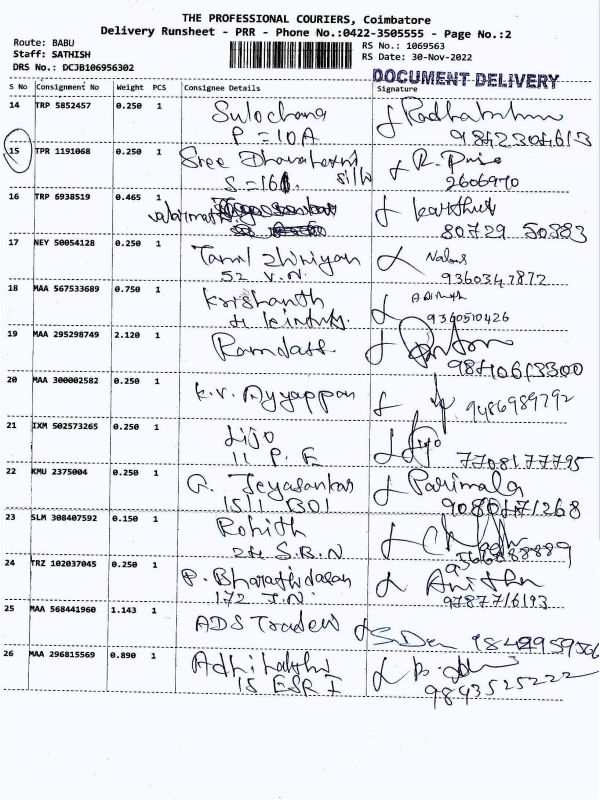 THE PROFESSIONAL COURIERS, Coimbatore
Delivery Runsheet - PRR - Phone No.:0422-3505555 - Page No.:2
Route: BABU
Staff: SATHISH
DRS No.: DCJB106956302
RS No.: 1069563
RS Date: 30-Nov-2022
DOCUMENT DELIVERY
S No Consignment No Weight PCS Consignee Details Signature
14 TRP 5852457 0.250 1 Sulochana
P = 10A 9842304613
15 TPR 1191068 0.250 1 Sree
S = 161 2606970
16 TRP 6938519 0.465 1
80729 50383
17 NEY 50054128 0.250 1 Tamil
52 V.N. 9360347872
18 MAA 567533689 0.750 1 Krishanth
9360510426
19 MAA 295298749 2.120 1 Ramdass
9840613300
20 MAA 300002582 0.250 1 K.V. Ayyappan 9486989792
21 IXM 502573265 0.250 1 Lijo Lijo
11 P. E 7708177795
22 KMU 2375004 0.250 1 G. Jeyasankar Parimala
1511 BO1 9080471268
23 SLM 308407592 0.150 1 Rohith
24 S.B.N
24 TRZ 102037045 0.250 1 P. Bharathidasan Anitha
172 J.N. 9787716193
25 MAA 568441960 1.143 1 ADS Traders
26 MAA 296815569 0.890 1
15 ESR I 9843525222